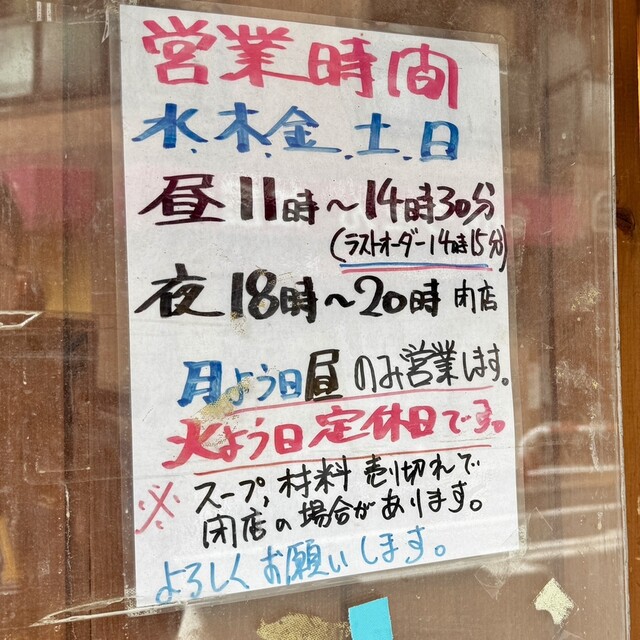 営業時間
水.木.金.土.日
昼11時～14時30分
(ラストオーダー14時15分)
夜18時～20時閉店
月よう日昼のみ営業します。
火よう日定休日です。
※スープ,材料売り切れで
閉店の場合があります。
よろしくお願いします。